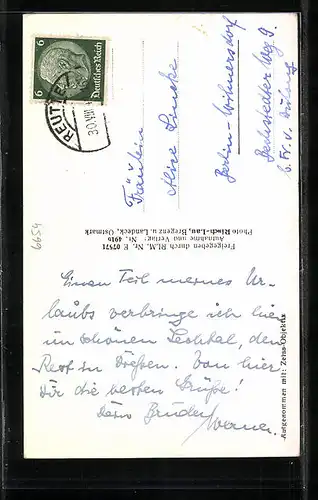 6
6
Deutsches Reich
REUTTE
30.VIII
Fräulein
Alice Lincke
Berlin-Wilmersdorf
Aechstedter Weg 9.
b. Fr. v.
Freigegeben durch RLM. E. Nr. 07571
Aufnahme und Verlag: Nr. 4916
Photo Risch-Lau, Bregenz u. Landeck, Ostmark
6654
Einen Teil meines Ur-
laubs verbringe ich hier
im schönen Lechtal, den
Rest in Dießen. Von hier
Dir die besten Grüße!
Dein Bruder
Werner.
Aufgenommen mit: Zeiss-Objektiv